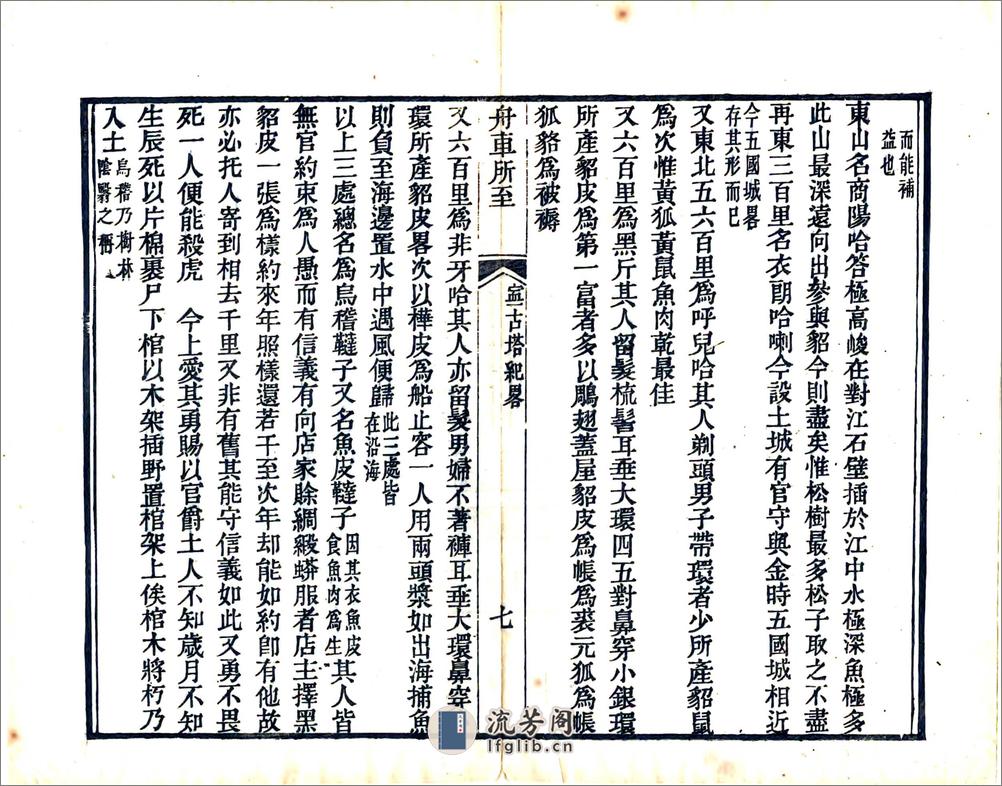 而能補
益也
東山名商陽哈答極高峻在對江石壁插於江中水極深魚極多
此山最深遠向出參與貂今則盡矣惟松樹最多松子取之不盡
再東三百里名衣朗哈喇今設土城有官守與金時五國城相近
今五國城畧
存其形而已
又東北五六百里爲呼兒哈其人剃頭男子帶環者少所產貂鼠
爲次惟黃狐黃鼠魚肉乾最佳
又六百里爲黑斤其人留髮梳髻耳垂大環四五對鼻穿小銀環
所產貂皮爲第一富者多以鵰翅蓋屋貂皮爲帳爲裘元狐爲帳
狐貉爲被褥
舟車所至
寍古塔紀畧
七
又六百里爲非牙哈其人亦留髮男婦不著褲耳垂大環鼻穿小
環所產貂皮畧次以樺皮爲船止容一人用兩頭槳如出海捕魚
則負至海邊置水中遇風便歸
此三處皆
在沿海
以上三處總名爲烏稽韃子又名魚皮韃子
因其衣魚皮
食魚肉爲生
其人皆
無官約束爲人愚而有信義有向店家賒綢緞蟒服者店主擇黑
貂皮一張爲樣約來年照樣還若干至次年却能如約卽有他故
亦必托人寄到相去千里又非有舊其能守信義如此又勇不畏
死一人便能殺虎 今上愛其勇賜以官爵土人不知歲月不知
生辰死以片棉裹尸下棺以木架插野置棺架上俟棺木將朽乃
入土
烏稽乃樹林
陰翳之謂
流芳阁
lfglib.cn